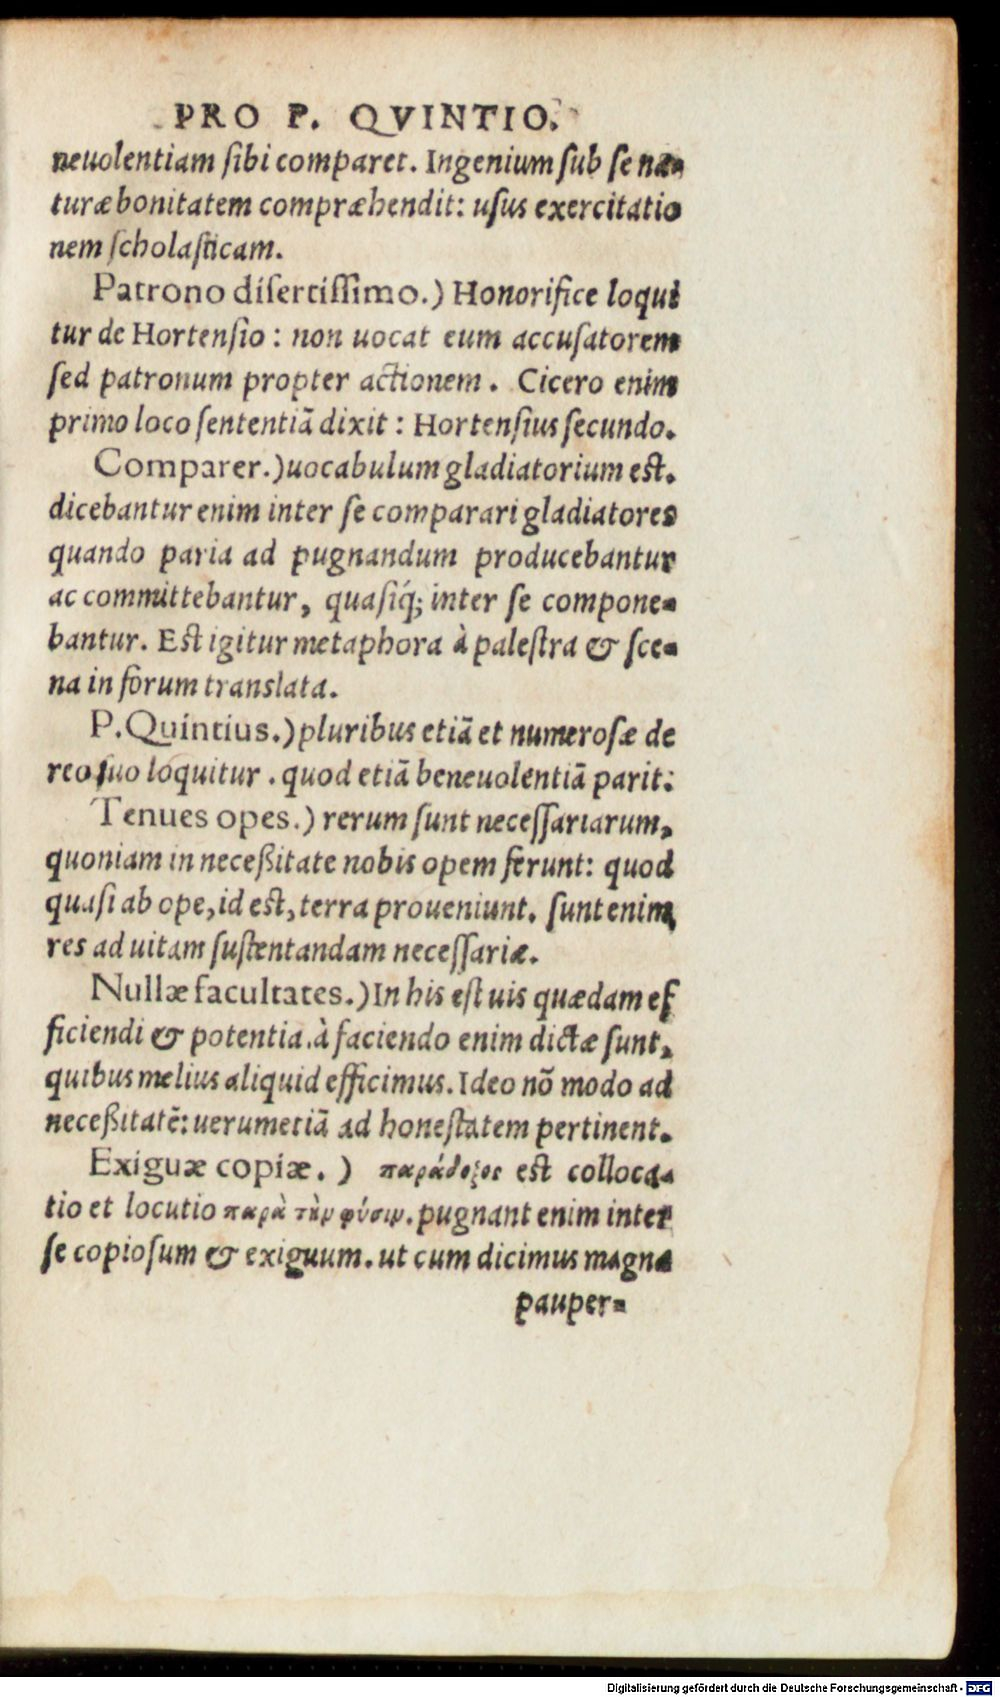 PRO P. QVINTIO.
neuolentiam sibi comparet. Ingenium sub se na-
turæ bonitatem compræhendit: usus exercitatio
nem scholasticam.
Patrono disertissimo.) Honorifice loqui
tur de Hortensio: non uocat eum accusatorem
sed patronum propter actionem. Cicero enim
primo loco sententiā dixit: Hortensius secundo.
Comparer.) uocabulum gladiatorium est.
dicebantur enim inter se comparari gladiatores
quando paria ad pugnandum producebantur
ac committebantur, quasiq́; inter se compone-
bantur. Est igitur metaphora à palestra & sce-
na in forum translata.
P. Quintius.) pluribus etiā et numerosæ de
reo suo loquitur. quod etiā beneuolentiā parit:
Tenues opes.) rerum sunt necessariarum,
quoniam in neceßitate nobis opem ferunt: quod
quasi ab ope, id est, terra proueniunt. sunt enim
res ad uitam sustentandam necessariæ.
Nullæ facultates.) In his est uis quædam ef
ficiendi & potentia. à faciendo enim dictæ sunt,
quibus melius aliquid efficimus. Ideo nō modo ad
neceßitatē: uerumetiā ad honestatem pertinent.
Exiguæ copiæ.) παράδοξος est colloca-
tio et locutio παρὰ τὴν φύσιν. pugnant enim inter
se copiosum & exiguum. ut cum dicimus magna
pauper-
Digitalisierung gefördert durch die Deutsche Forschungsgemeinschaft - DFG